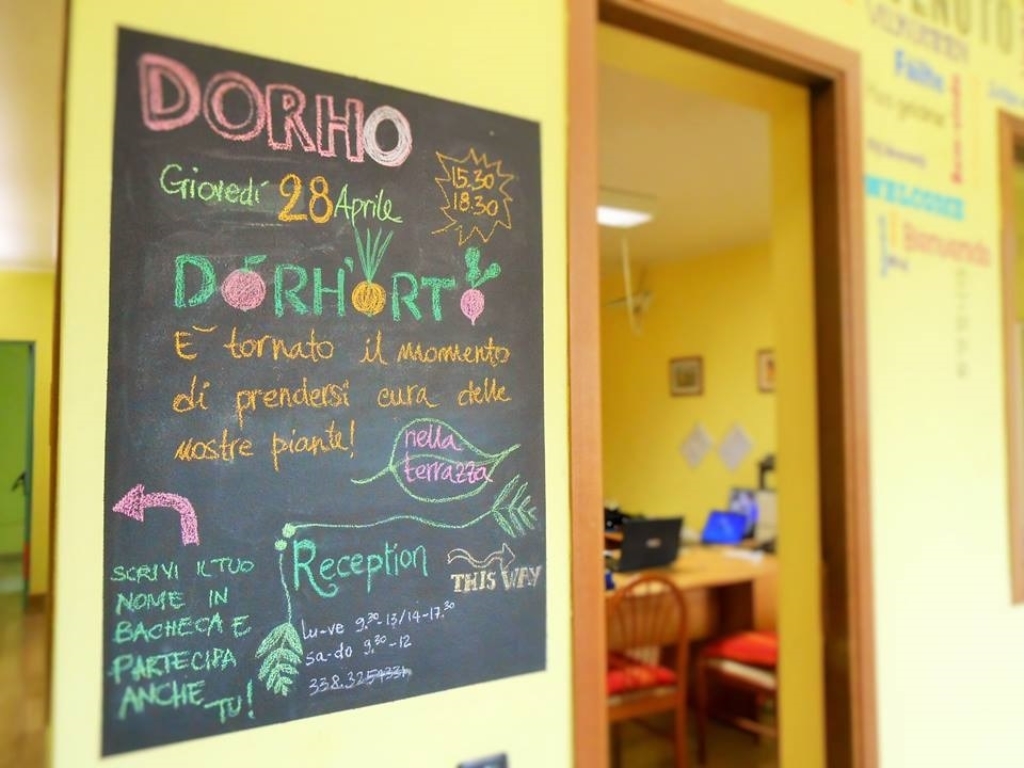 DORHO
Giovedí 28 Aprile
15.30
18.30
DORH'ORTO
E' tornato il momento
di prendersi cura delle
nostre piante!
nella
terrazza
SCRIVI IL TUO
NOME IN
BACHECA E
PARTECIPA
ANCHE
TU!
Reception
THIS WAY
lu-ve 9.30-13/14-17.30
sa-do 9.30-12
338.32
Fáilte
WELCOME
Benvenuto